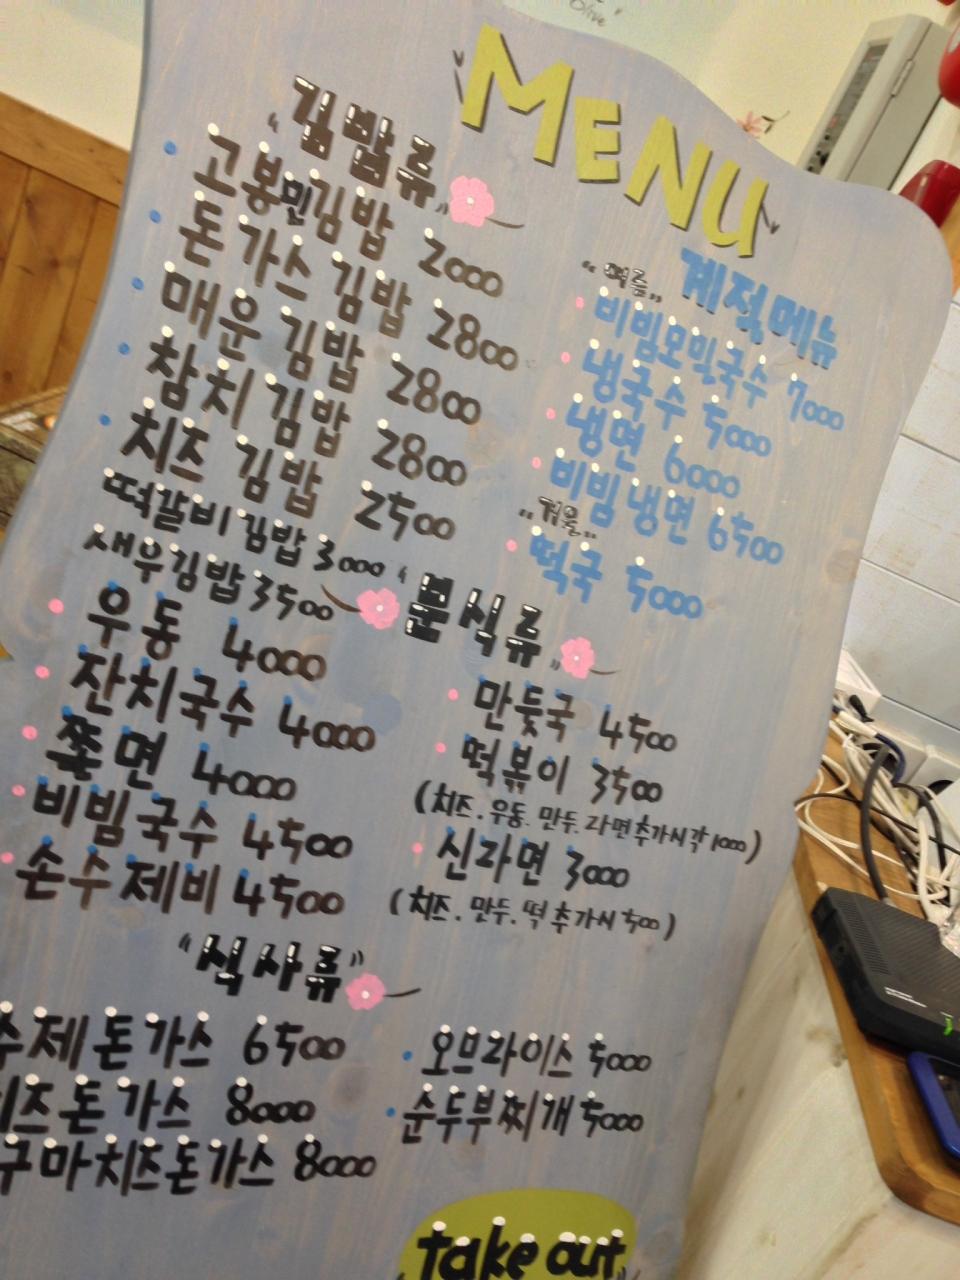 Olive
MENU
"김밥류"
고봉민김밥 2000
돈가스김밥 2800
매운김밥 2800
참치김밥 2800
치즈김밥 2500
떡갈비김밥 3000
새우김밥 3500
"여름" 계절메뉴
비빔모밀국수 7000
냉국수 5000
냉면 6000
비빔냉면 6500
"겨울"
떡국 5000
"분식류"
우동 4000
잔치국수 4000
쫄면 4000
비빔국수 4500
손수제비 4500
만둣국 4500
떡볶이 3500
(치즈.우동.만두.라면추가시각1000)
신라면 3000
(치즈.만두.떡추가시500)
"식사류"
수제돈가스 6500
치즈돈가스 8000
구마치즈돈가스 8000
오므라이스 5000
순두부찌개 5000
take out